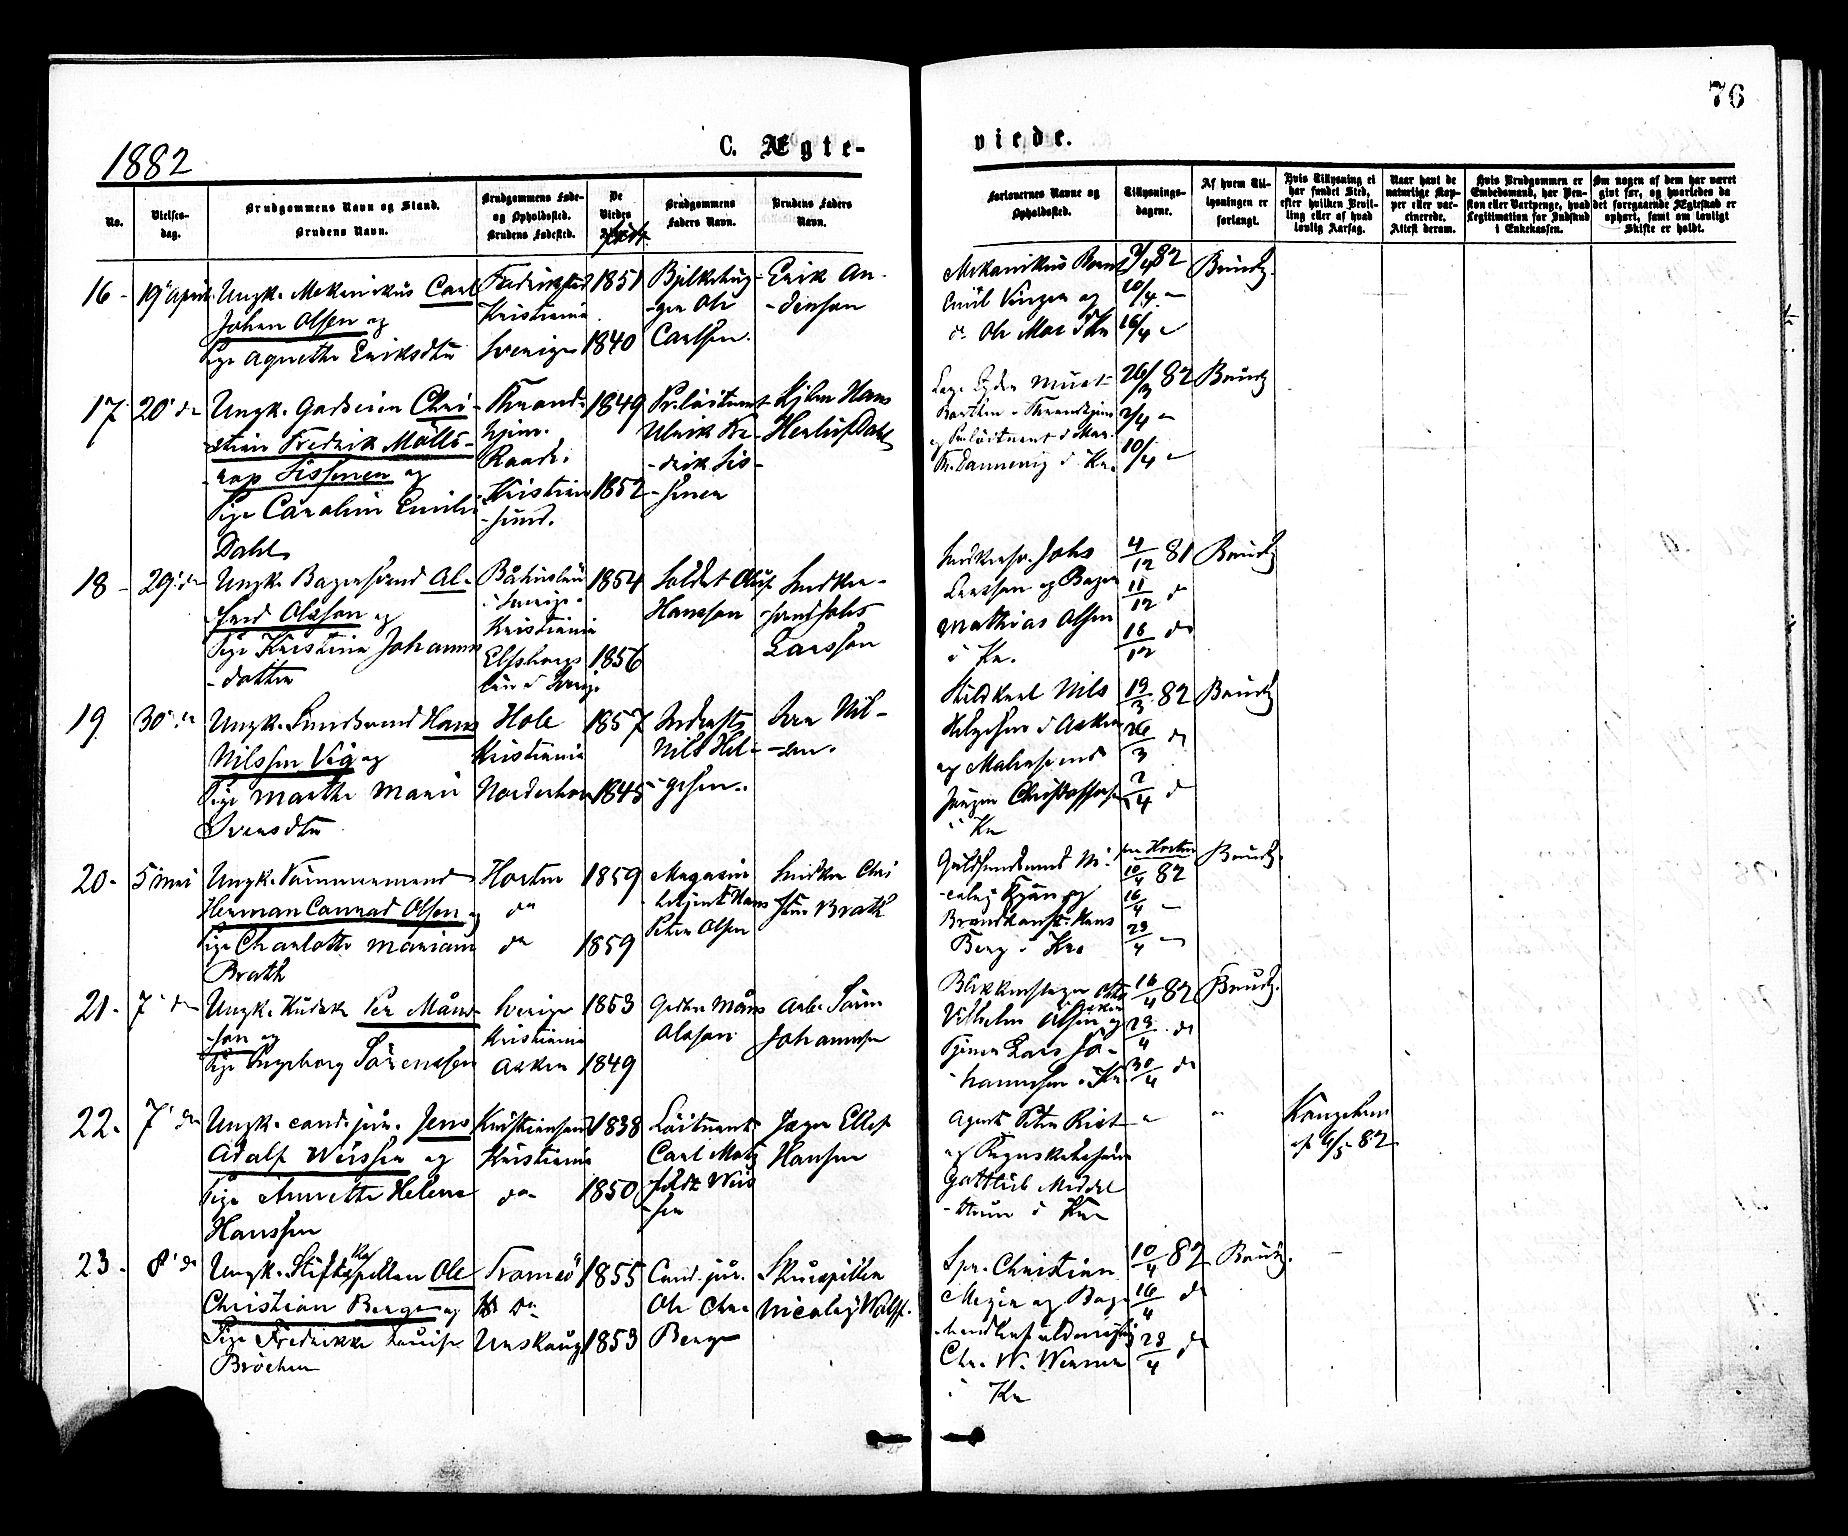 76
1882
C. Ægte-
viede.
No.
Vielses-
dag.
Brudgommens Navn og Stand.
Brudens Navn.
Brudgommens Føde-
og Opholdssted.
Brudens Fødested.
De
Viedes
Brudgommens
Faders Navn.
Brudens Faders
Navn.
Forlovernes Navne og
Opholdssted.
Tillysnings-
dagene.
Af hvem Til-
lysningen er
forlangt.
Hvis Tillysning ei
har fundet Sted,
efter hvilken Bevil-
ling eller af hvad
lovlig Aarsag.
Naar havt de
naturlige Kop-
per eller vac-
cinerede.
Attest derom.
Hvis Brudgommen er
Embedsmand, har Pen-
sion eller Vartpenge, hvad
Legitimation for Indskud
i Enkekassen.
Om nogen af dem har været
gift før, og hvorledes da
det foregaaende Ægteskab er
ophørt, samt om lovligt
Skifte er holdt.
16 - 19 April
Ungk. Mekanikus Carl
Johan Olsen og
Pige Agnethe Eriksdtr
Fredrikstad
Kristiania
Sverige
1851
1840
Ole
Carlsen.
Erik An-
-dersson
Mekanikus
Emil
d. Ole Moe i Kr
2/4 82
10/4 -
16/4 -
Brudg.
17 20 do
Ungk. Chri-
-stian Fredrik
Sissener og
Pige Caroline Emilie
Dahl
Thrond-
hjem.
Kristian-
-sund.
1849
1852
Pr.løitnant
Ulrik Fre-
-drik Sis-
-sener
Hans
Herlof Dahl
26/3 82
2/4 -
10/4 -
Brudg
18 - 29 do
Ungk. Bagersvend Al-
-fred Olsson og
Pige Kristina Johannes
-datter
Båhuslän
i Sverige.
Kristiania
Elfsborgs
län i Sverige
1854
1856
Soldat Oluf
Hansson
Snedker-
-svend Johs
Larsson
Snedkersv. Johs
Larsson og Bager
Mathias Olsen
i Kr.
4/12 81
11/12 do
18/12 do
Brudg
19 30 do
Ungk. Smedsvend Hans
Nilssen Vig og
Pige Marthe Marie
Iversdtr
Hole
Kristiania
Norderhov
1857
1845
Inderst
Nils Hel-
-gesen.
Iver Nil-
-sen.
Stildkarl Nils
Helgesen i Aker
og Malersvend
Jørgen Christoffersen
i Kr
19/3 82
26/3 do
2/4 do
Brudg
20 - 5 Mai
Ungk. Tømmermand
Herman Conrad Olsen og
Pige Charlotte Mariane
Brath
Horten
do
do
1859
1859
Magasin
betjent Hans
Peter Olsen
Snedker Chri
stian Brath
Guldsmedsvend Ni-
-colay Kjær og
Brandkonst. Hans
Berg i Kra
fra Horten
10/4 82
16/4 -
23/4 -
Brudg.
21 - 7 do
Ungk. Kudsk Per Måns-
-son og
Pige Ingeborg Sørenssen
Sverige
Kristiania
Aker
1853
1849
Måns
Olsson
Arb. Søren
Johannesen
Blikkenslager Otto
Vilhelm Olsen Aker og
Tjener Lars Jo-
-hannesen i Kr
16/4 82
23/4 do
30/4 do
Brudg.
22 - 7 do
Ungk. cand. jur. Jens
Adolf Weissen og
Pige Annette Helene
Hanssen
Kristiansand
Kristiania
do
1838
1850
Løitnant
Carl Motz
feldt Weis
-sen
Jæger Ellef
Hansen
Agent Peter Rist
og
Gottlieb Middel
-thun i Kra
-
-
Kongebrev
af 4/5 82
23 - 8 do
Ungk. Stiftskapellan Ole
Christian Berge og
Pige Fredrikke Louise
Brochen
Tromsø
do
1855
1853
Cand. jur.
Ole Chr.
Berge
Skuespiller
Nicolay Wolff.
Spr. Christian
Meyer og
Chr. W.
i Kr
10/4 82
16/4 do
23/4 do
Brudg.